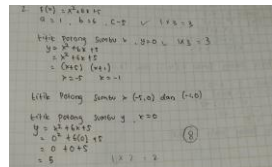 2. f(x) = x² + 6x + 5
a = 1, b = 6, c = 5
titik Potong Sumbu x, y = 0
y = x² + 6x + 5
= x² + 6x + 5
= (x+5) (x+1)
x = -5 x = -1
titik Potong Sumbu x (-5,0) dan (-1,0)
titik Potong Sumbu y x = 0
y = x² + 6x + 5
= 0² + 6(0) + 5
= 0 + 0 + 5
= 5
8